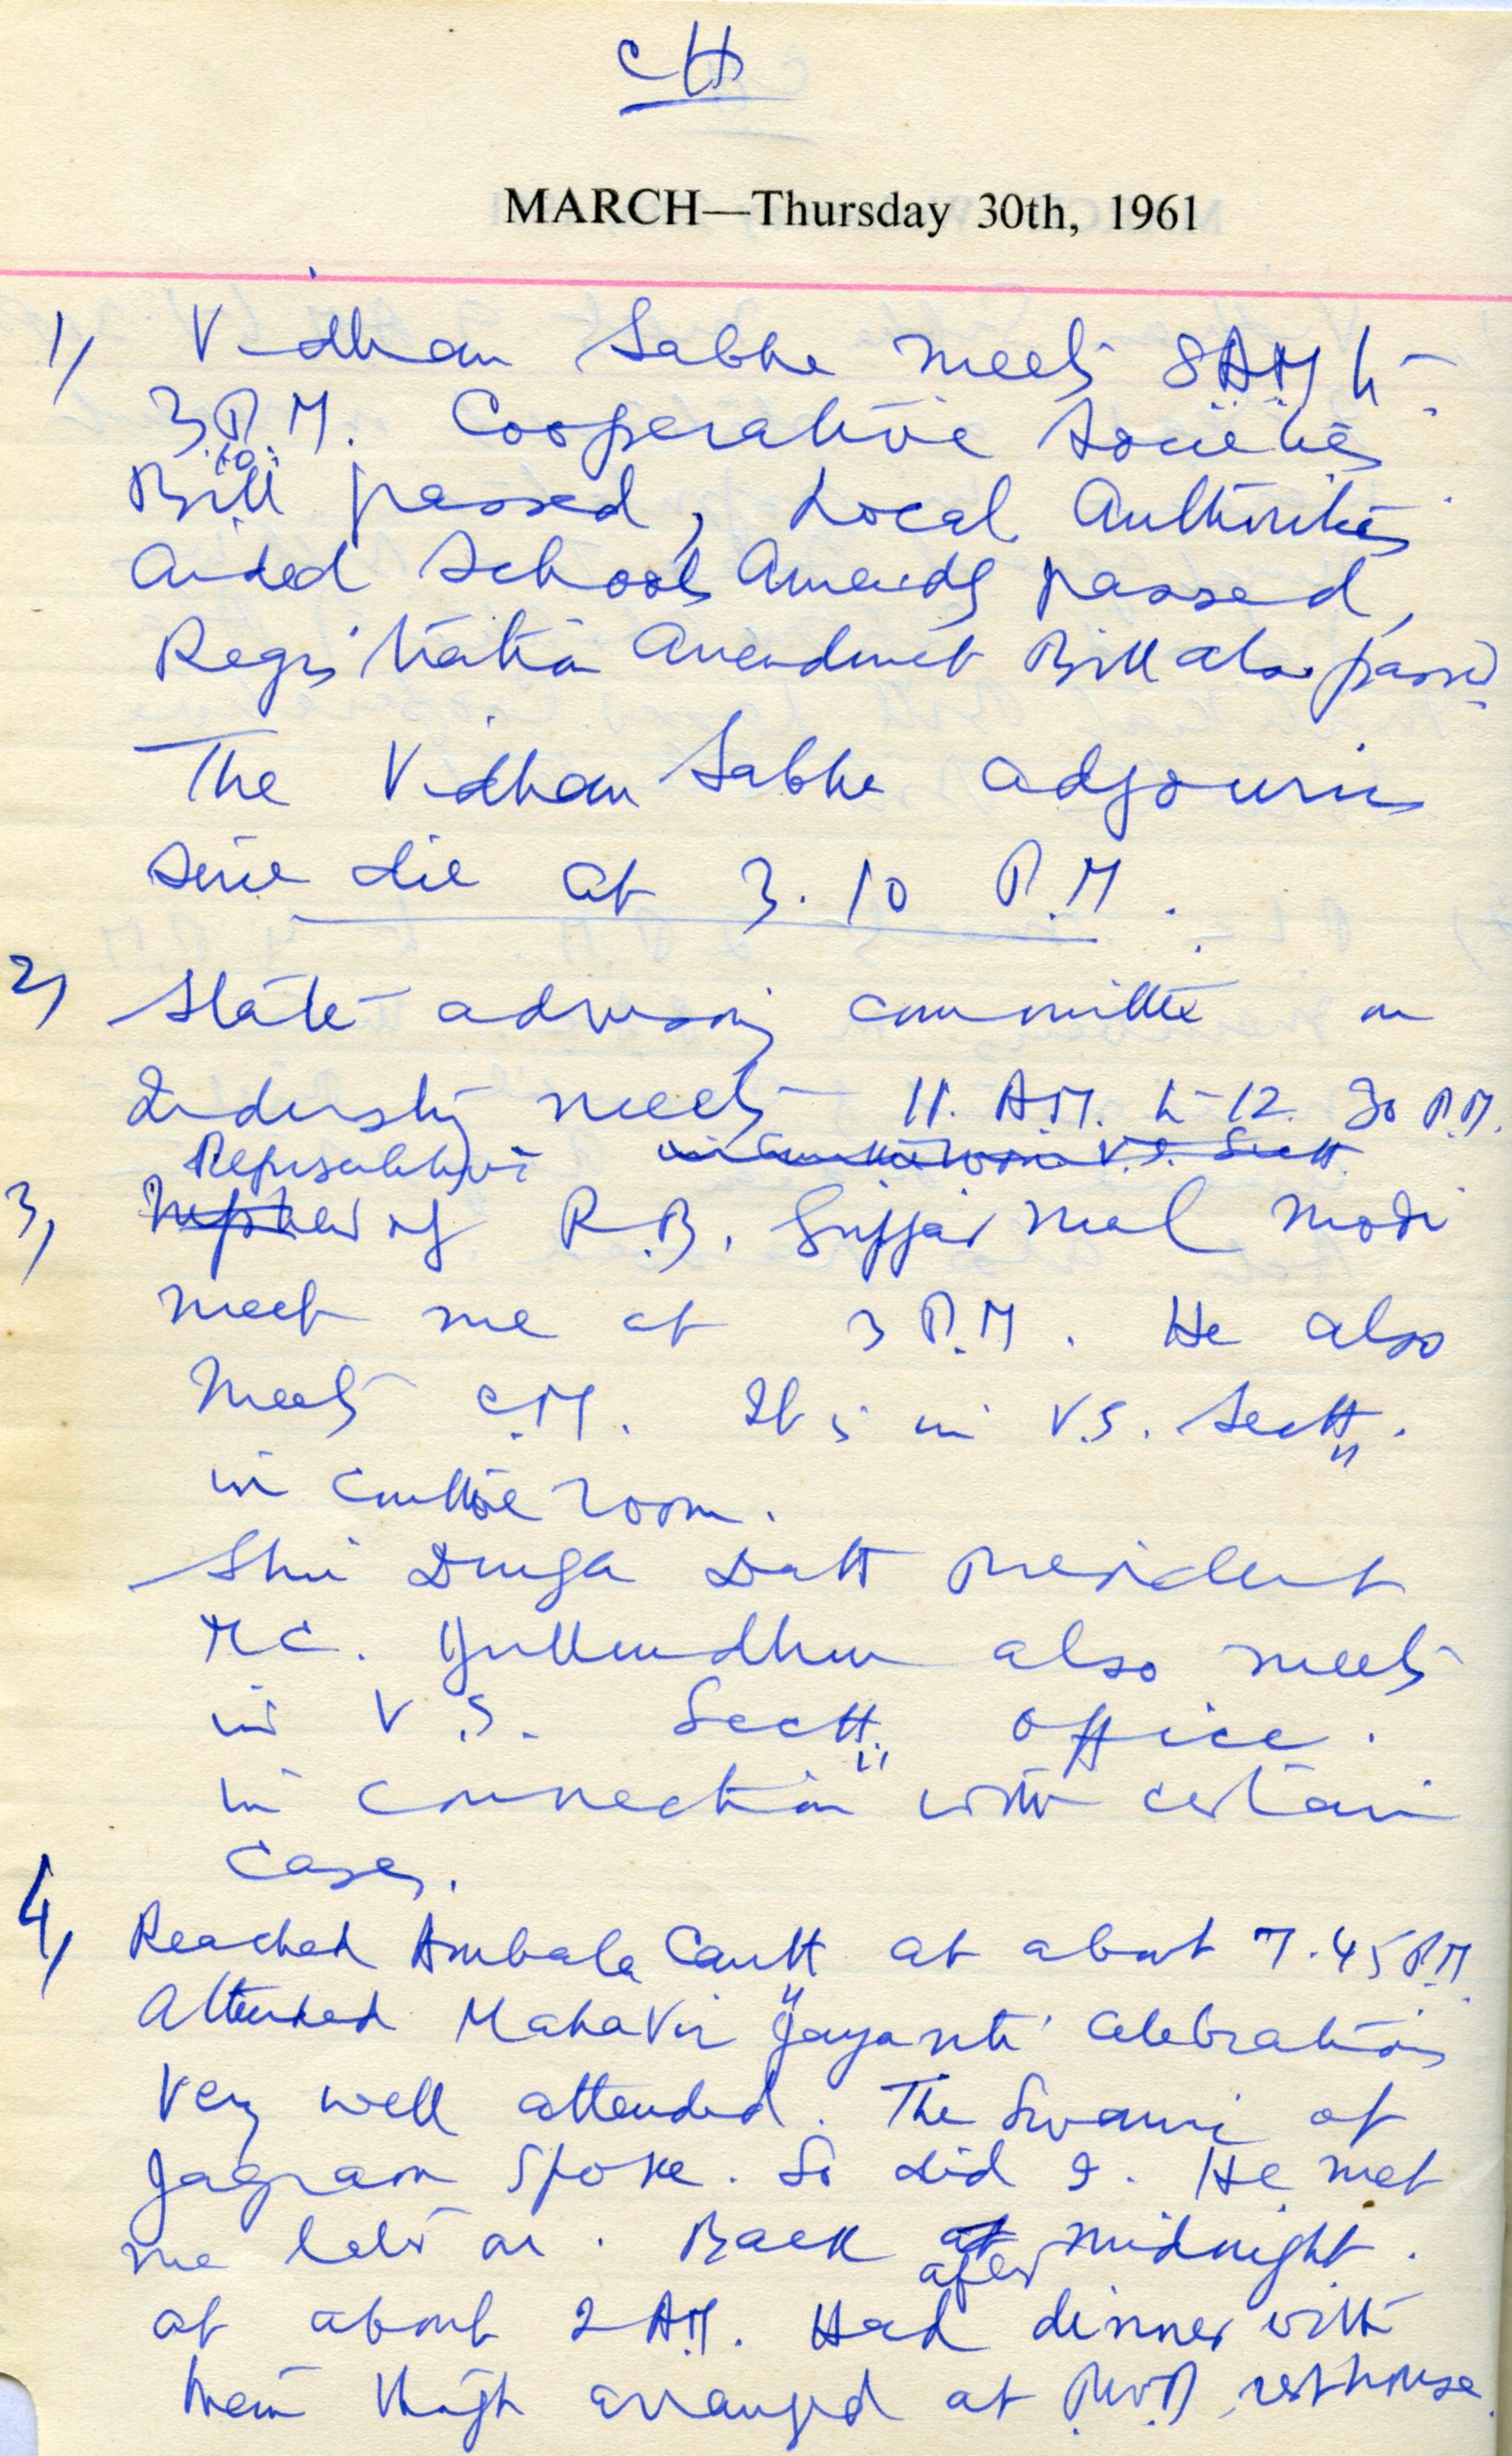 CH
MARCH—Thursday 30th, 1961
1) Vidhan Sabha meets 8 A.M. to
3.10 P.M. Cooperative Societies
Bill passed, Local Authorities
Aided Schools Amendg passed,
Registration Amendment Bill also passed
The Vidhan Sabha adjourns
sine die at 3.10 P.M.
2) State advisory committee on
Industry meets 11. A.M. to 12.30 P.M.
Representative in Cmttee room V.S. Sectt.
3) Nephew of R.B. Gujjar Mal Modi
meet me at 3 P.M. He also
meets C.M. It is in V.S. Sectt.
in Cmttee room.
Shri Durga Datt President
M.C. Jullundhur also meets
in V.S. Sectt. office.
in connection with certain
cases.
4) Reached Ambala Cantt at about 7.45 P.M.
Attended Mahavir Jayanti Celebrations
Very well attended. The Swami of
Jagraon spoke. So did I. He met
me later on. Back at midnight.
after
at about 2 A.M. Had dinner with
them though arranged at P.W.D. rest house.